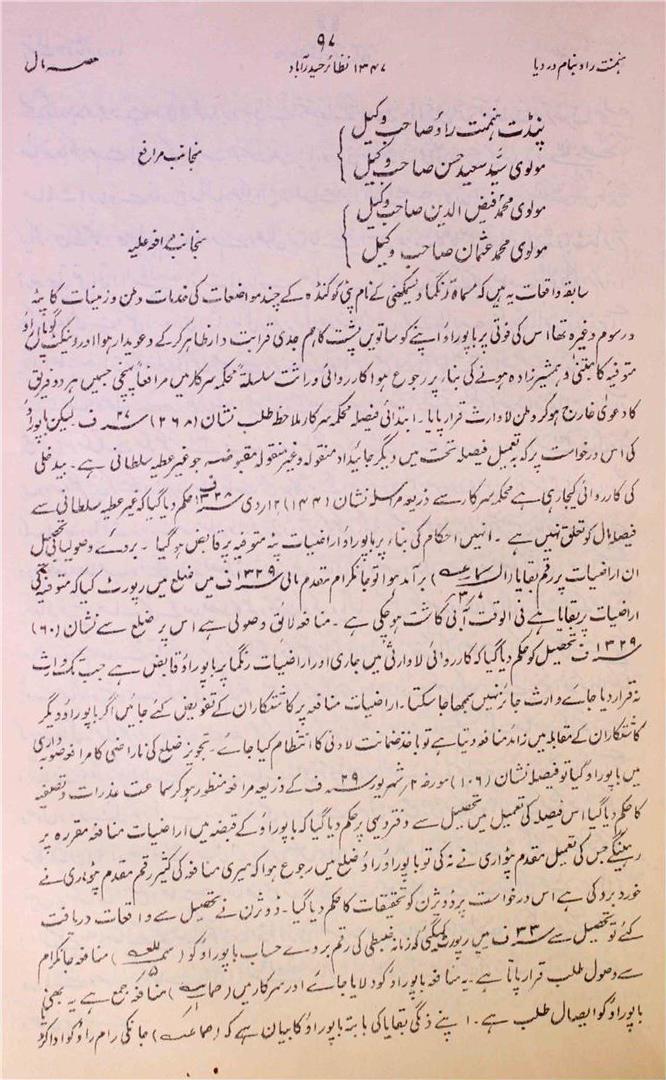 ۹۷
ہنمنت راؤ بنام در دیا
۱۳۴۷ نظائر حیدرآباد
حصہ مال
پنڈت ہنمنت راؤ صاحب وکیل
مولوی سید سعید حسن صاحب وکیل
منجانب مرافع
مولوی محمد فیض الدین صاحب وکیل
مولوی محمد عثمان صاحب وکیل
منجانب مرافعہ علیہ
سابقہ واقعات یہ ہیں کہ مسماۃ رنگما دیسکھنی کے نام پنی کونڈہ کے چند مواضعات کی خدمات وطن و زمینات کا پٹہ
و رسوم وغیرہ تھا اس کی فوتی پر باپوراؤ اپنے کو ساتویں پشت کا ہم جدی قرابت دار ظاہر کرکے دعویدار ہوا اور وینکٹ گوپال راؤ
متوفیہ کا متبنی و ہمشیر زادہ ہونے کی بناء پر رجوع ہوا کارروائی وراثت سلسلۃً محکمہ سرکار میں مرافعاً پہنچی جسمیں ہر دو فریق
کا دعویٰ خارج ہوکر وطن لاوارث قرار پایا۔ ابتدائی فیصلہ محکمہ سرکار ملاحظہ طلب نشان (۲۶۸) ۲۷ ف۔ لیکن باپوراؤ
کی اس درخواست پر کہ بتعمیل فیصلہ تحت میں دیگر جائیداد منقولہ و غیر منقولہ مقبوضہ جو غیر عطیہ سلطانی ہے۔ بیدخلی
کی کارروائی کیجارہی ہے محکمہ سرکار سے ذریعہ مراسلہ نشان (۱۴۴) ۱۲؍دی ۱۳۲۸ف حکم دیا گیا کہ غیر عطیہ سلطانی سے
فیصلہ مال کو تعلق نہیں ہے۔ انہیں احکام کی بناء پر باپوراؤ اراضیات پٹہ متوفیہ پر قابض ہوگیا۔ بروئے وصولباقی تحصیل
ان اراضیات پر رقم بقایا برآمد ہوا تو جانکرام مقدم مالی ۱۳۲۹ ف میں ضلع میں رپورٹ کیا کہ متوفیہ کی
اراضیات پر بقایا ہے فی الوقت آبی کاشت ہوچکی ہے۔ منافعہ لائق وصولی ہے اس پر ضلع سے نشان (۶۰)
۱۳۲۹ ف تحصیل کو حکم دیا گیا کہ کارروائی لاوارثی میں جاری اور اراضیات رنگما پر باپوراؤ قابض ہے جب تک وارث
نہ قرار دیا جائے وارث جائز نہیں سمجھا جاسکتا۔ اراضیات منافعہ پر کاشتکاران کے تفویض کئے جائیں اگر باپوراؤ دیگر
کاشتکاران کے مقابلہ میں زائد منافعہ دیتا ہے تو باخذ ضمانت لاونی کا انتظام کیا جائے۔ تجویز ضلع کی ناراضی کا مرافعہ صوبہ داری
میں باپوراؤ گیا تو فیصلہ نشان (۱۰۶) مورخہ ۲؍شہریور ۲۹ ف کے ذریعہ مرافعہ منظور ہوکر سماعت عذرات و تصفیہ
کا حکم دیا گیا اس فیصلہ کی تعمیل میں تحصیل سے دفتر دیہی پر حکم دیا گیا کہ باپوراؤ کے قبضہ میں اراضیات منافعہ مقررہ پر
رہینگے جس کی تعمیل مقدم پٹواری نے نہ کی تو باپوراؤ ضلع میں رجوع ہوا کہ میری منافعہ کی کثیر رقم مقدم پٹواری نے
خورد برد کی ہے اس درخواست پر ڈویژن کو تحقیقات کا حکم دیا گیا۔ ڈویژن نے تحصیل سے واقعات دریافت
کئے تو تحصیل سے ۳۳ ف میں رپورٹ کیگئی کہ زمانہ ضبطی کی رقم بروے حساب باپوراؤ کو منافعہ جانکرام
سے وصول طلب قرار پاتا ہے۔ یہ منافعہ باپوراؤ کو دلایا جائے اور سرکار میں منافعہ جمع ہے یہ بھی
باپوراؤ کو ایصال طلب ہے۔ اپنے ذمگی بقایا کی بابتہ باپوراؤ کا بیان ہے کہ جانکی رام راؤ کو ادا کرد